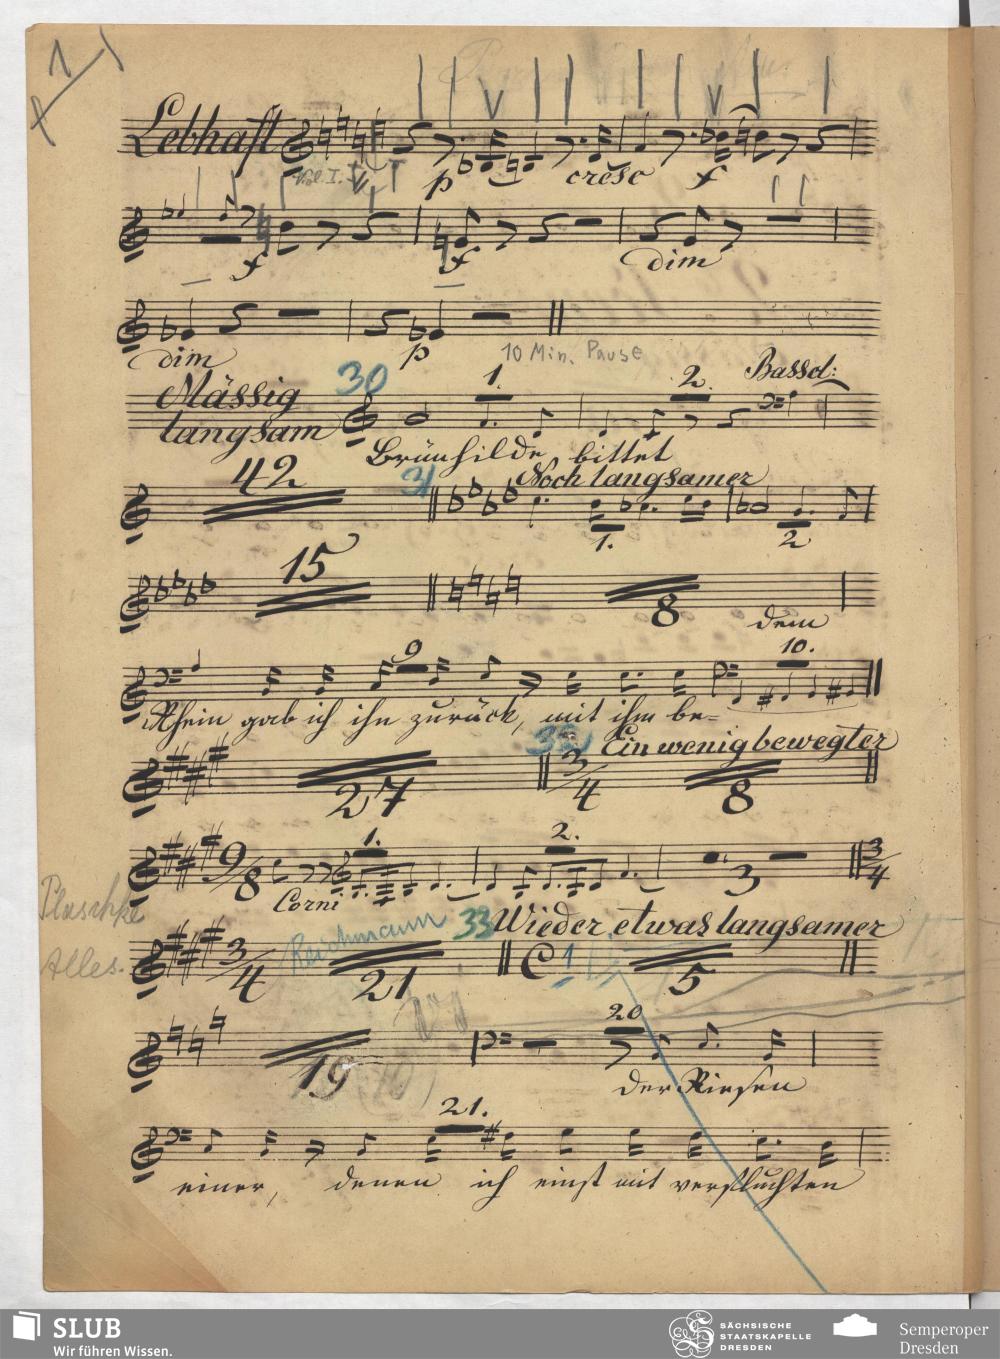 1
Lebhaft
Viol. I.
p cresc f
f f dim
dim p 10 Min. Pause
Mässig 30 1. 2. Bassel:
langsam
Brünhilde bittet
42 31 Noch langsamer
1. 2
15 8 dem
9 10.
Rhein gab ich ihn zurück, mit ihm be=
32 Ein wenig bewegter
27 3/4 8
9/8 1. 2. 3 3/4
Corni
Plaschke
Reichmann 33 Wieder etwas langsamer
Alles. 3/4 21 C 1 5
19 20
der Riesen
21.
einer, denen ich einst mit verfluchten
SLUB
Wir führen Wissen.
SÄCHSISCHE
STAATSKAPELLE
DRESDEN
Semperoper
Dresden